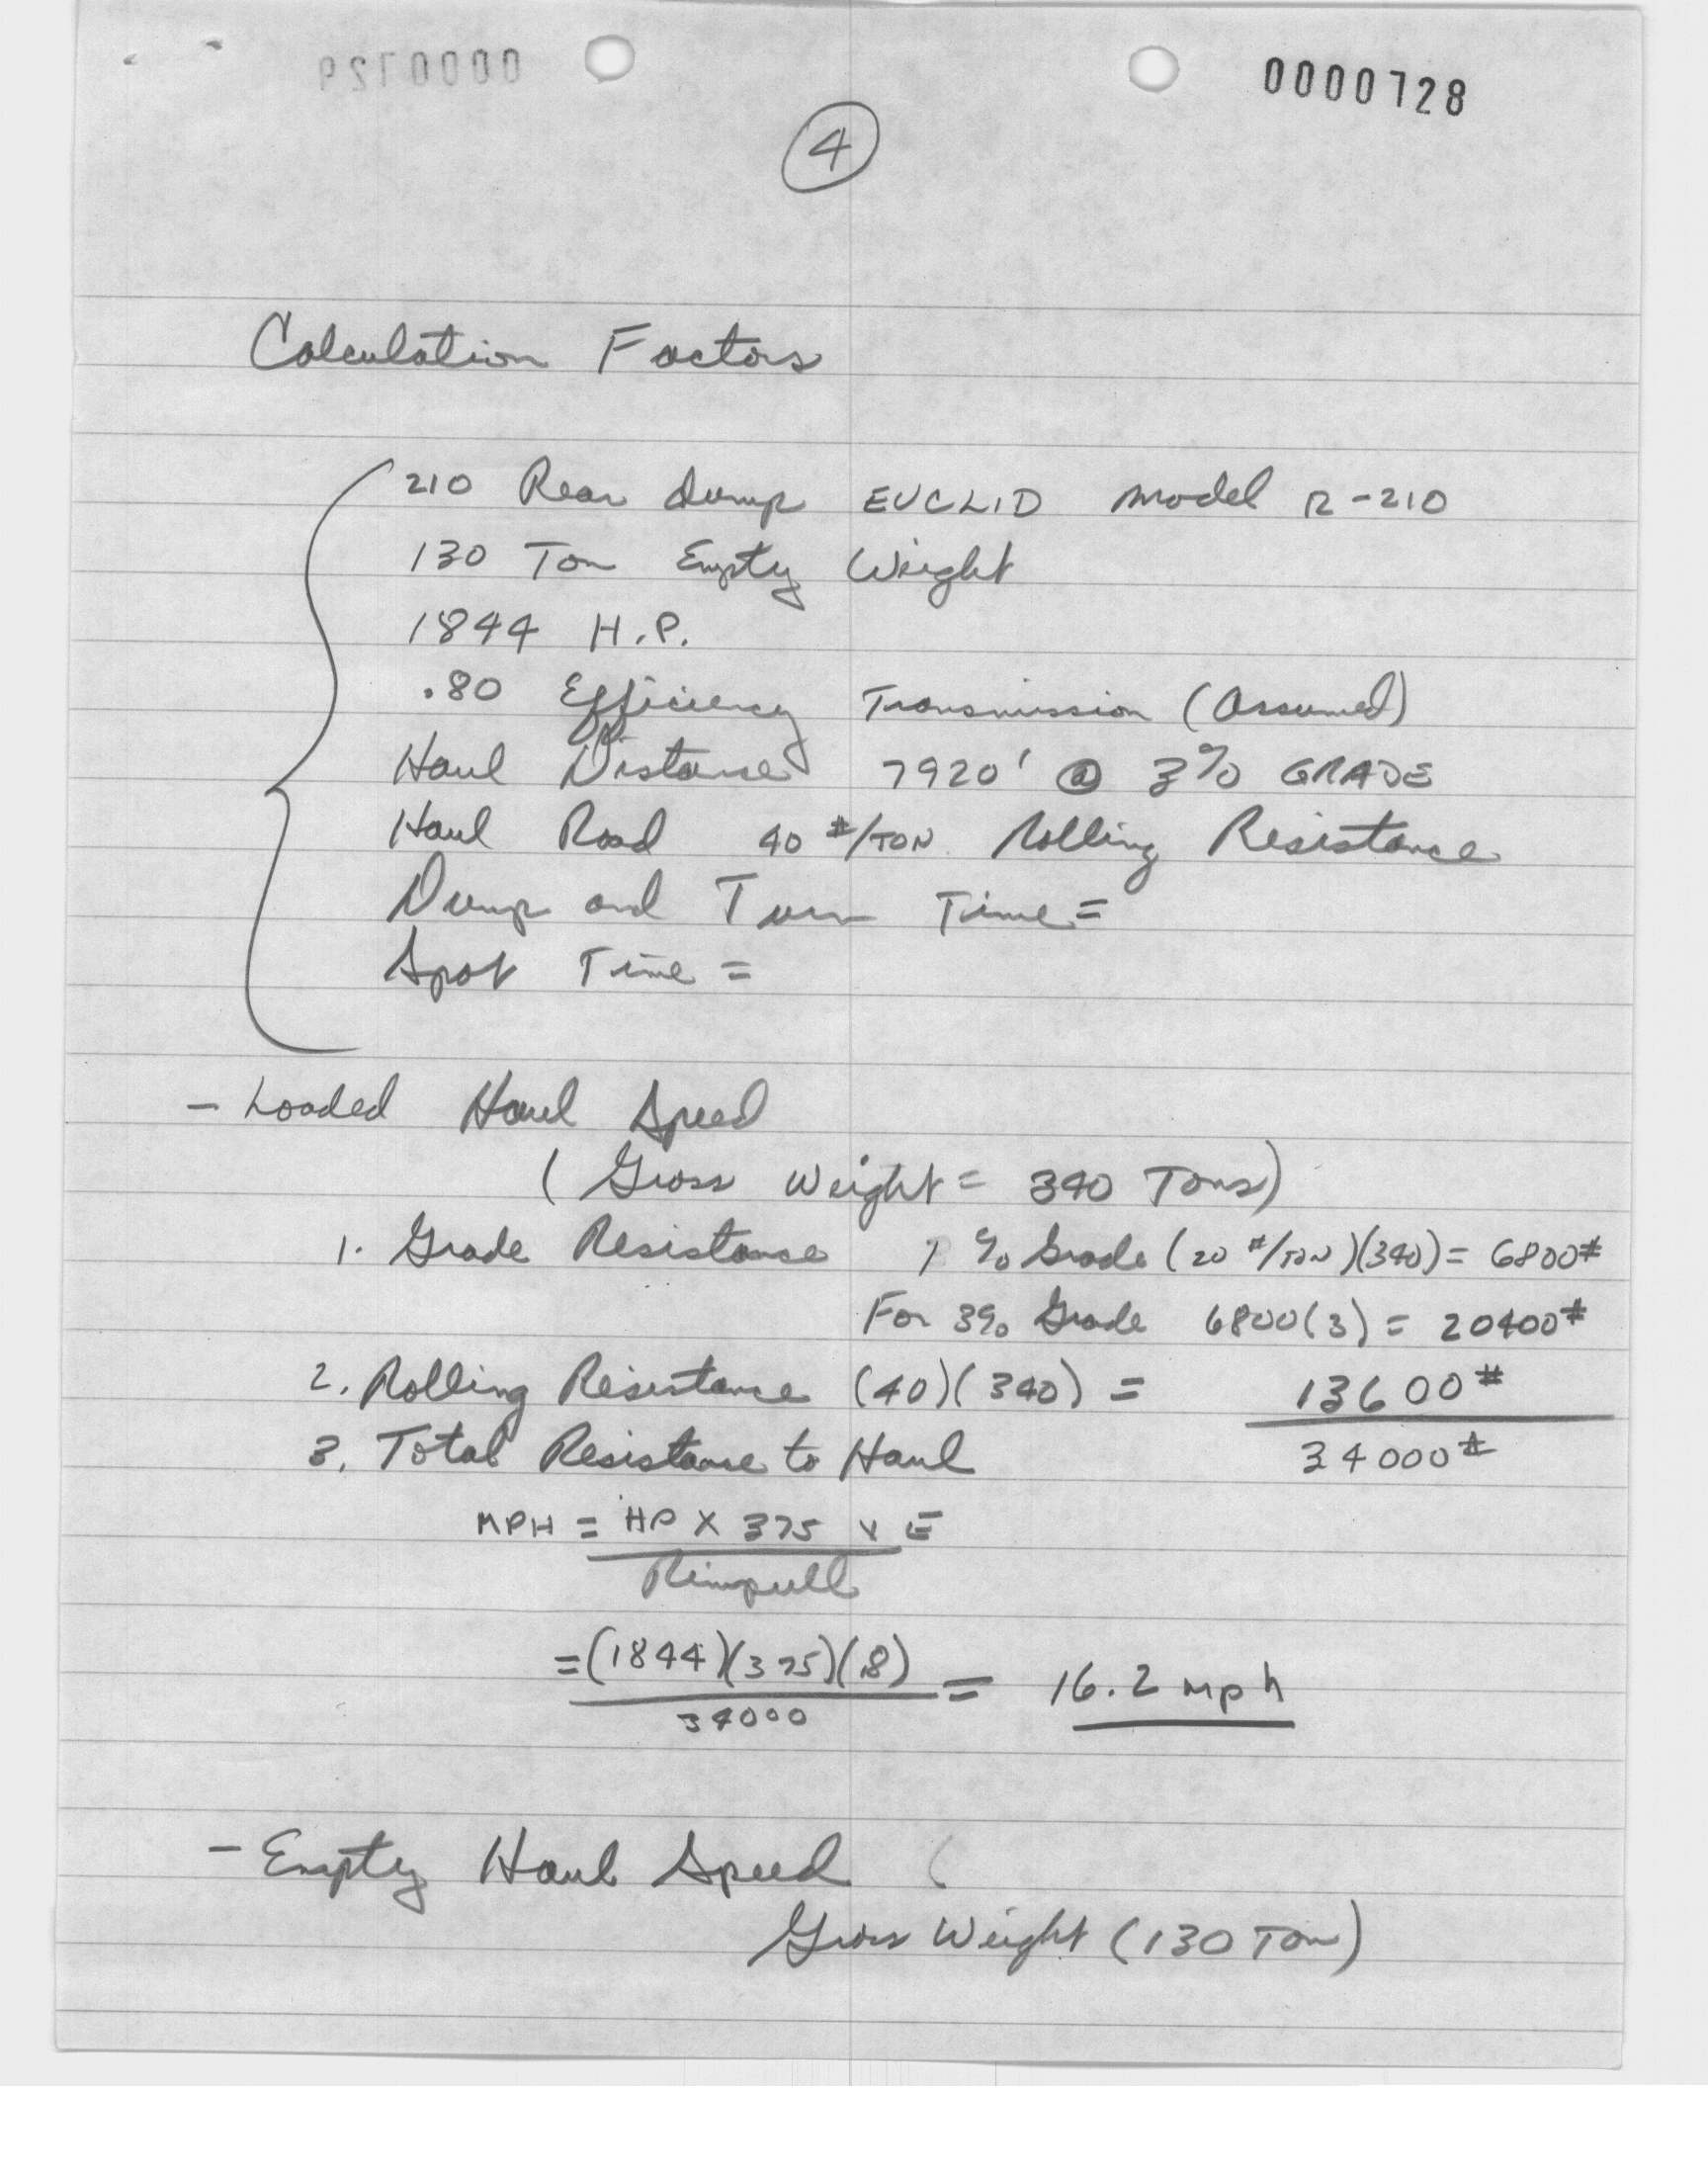 0000729
0000728
4
Calculation Factors
210 Rear Dump EUCLID Model R-210
130 Ton Empty Weight
1844 H.P.
.80 Efficiency Transmission (Assumed)
Haul Distance 7920' @ 3% GRADE
Haul Road 40 #/TON Rolling Resistance
Dump and Turn Time =
Spot Time =
- Loaded Haul Speed
(Gross Weight = 340 Tons)
1. Grade Resistance 1% Grade (20 #/TON)(340) = 6800#
For 3% Grade 6800(3) = 20400#
2. Rolling Resistance (40)(340) = 13600#
3. Total Resistance to Haul 34000#
MPH = HP X 375 X E
Rimpull
= (1844)(375)(.8) = 16.2 mph
34000
- Empty Haul Speed (
Gross Weight (130 Ton)